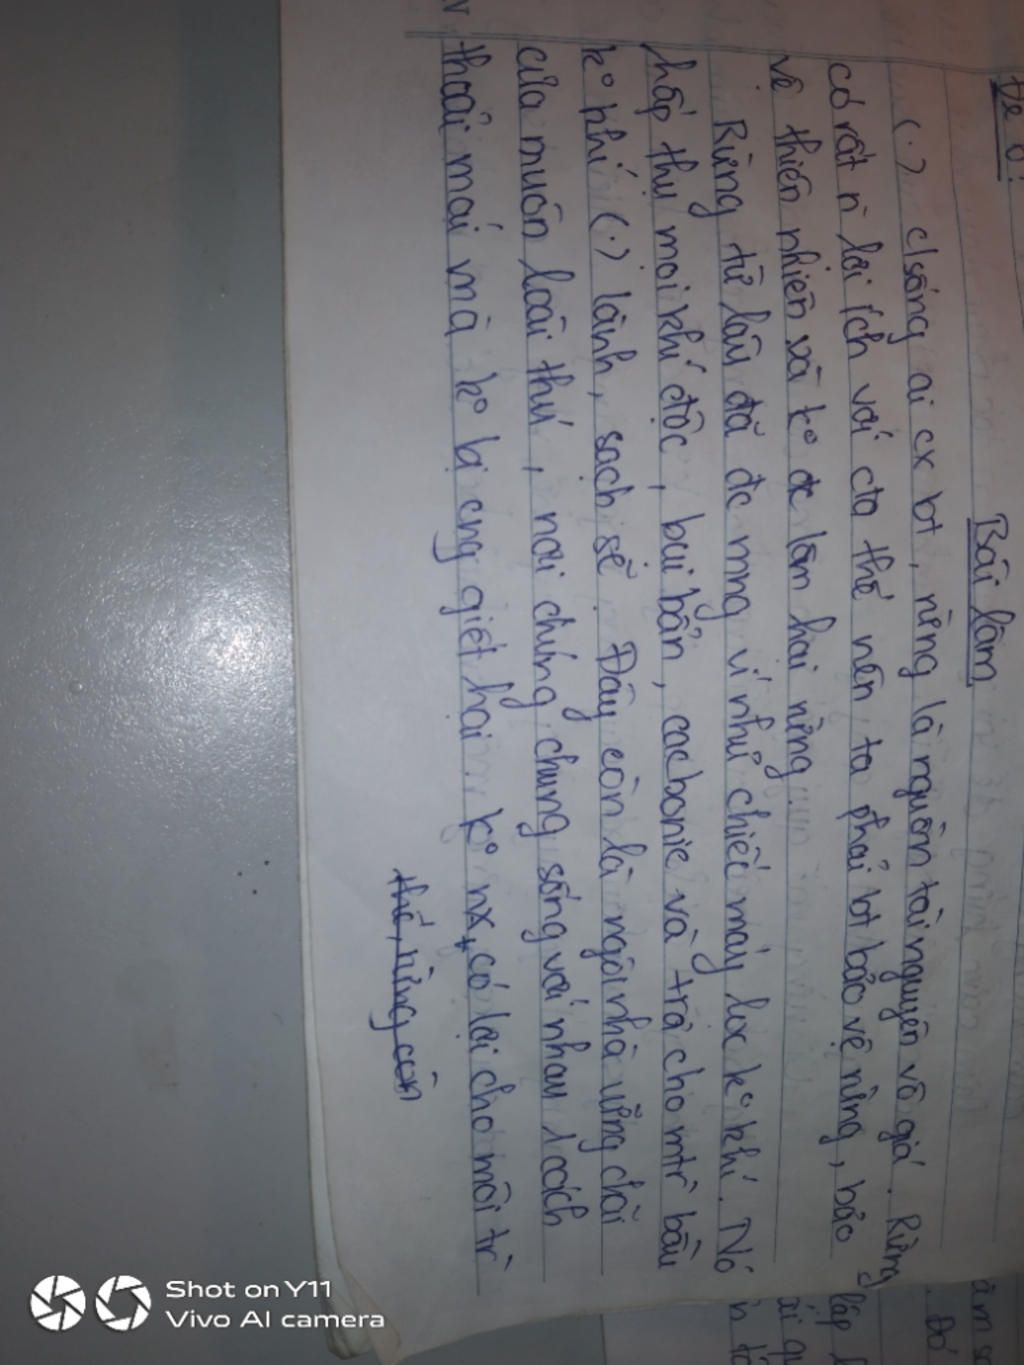 Đề 6:
Bài làm
(.) c/sống ai cx bt, rừng là nguồn tài nguyên vô giá. Rừng
có rất n` lợi ích với cta thế nên ta phải bt bảo vệ rừng, bảo
vệ thiên nhiên và ko đc làm hại rừng.
Rừng từ lâu đã đc mng ví như chiếc máy lọc ko khí. Nó
hấp thụ mọi khí độc, bụi bẩn, cacbonic và trả cho mtr` bầu
ko khí (.) lành, sạch sẽ. Đây còn là ngôi nhà vững chãi
của muôn loài thú, nơi chúng chung sống với nhau 1 cách
thoải mái mà ko bị cng giết hại. ko nx, có lợi cho môi tr`
thế, rừng còn
Shot on Y11
Vivo AI camera